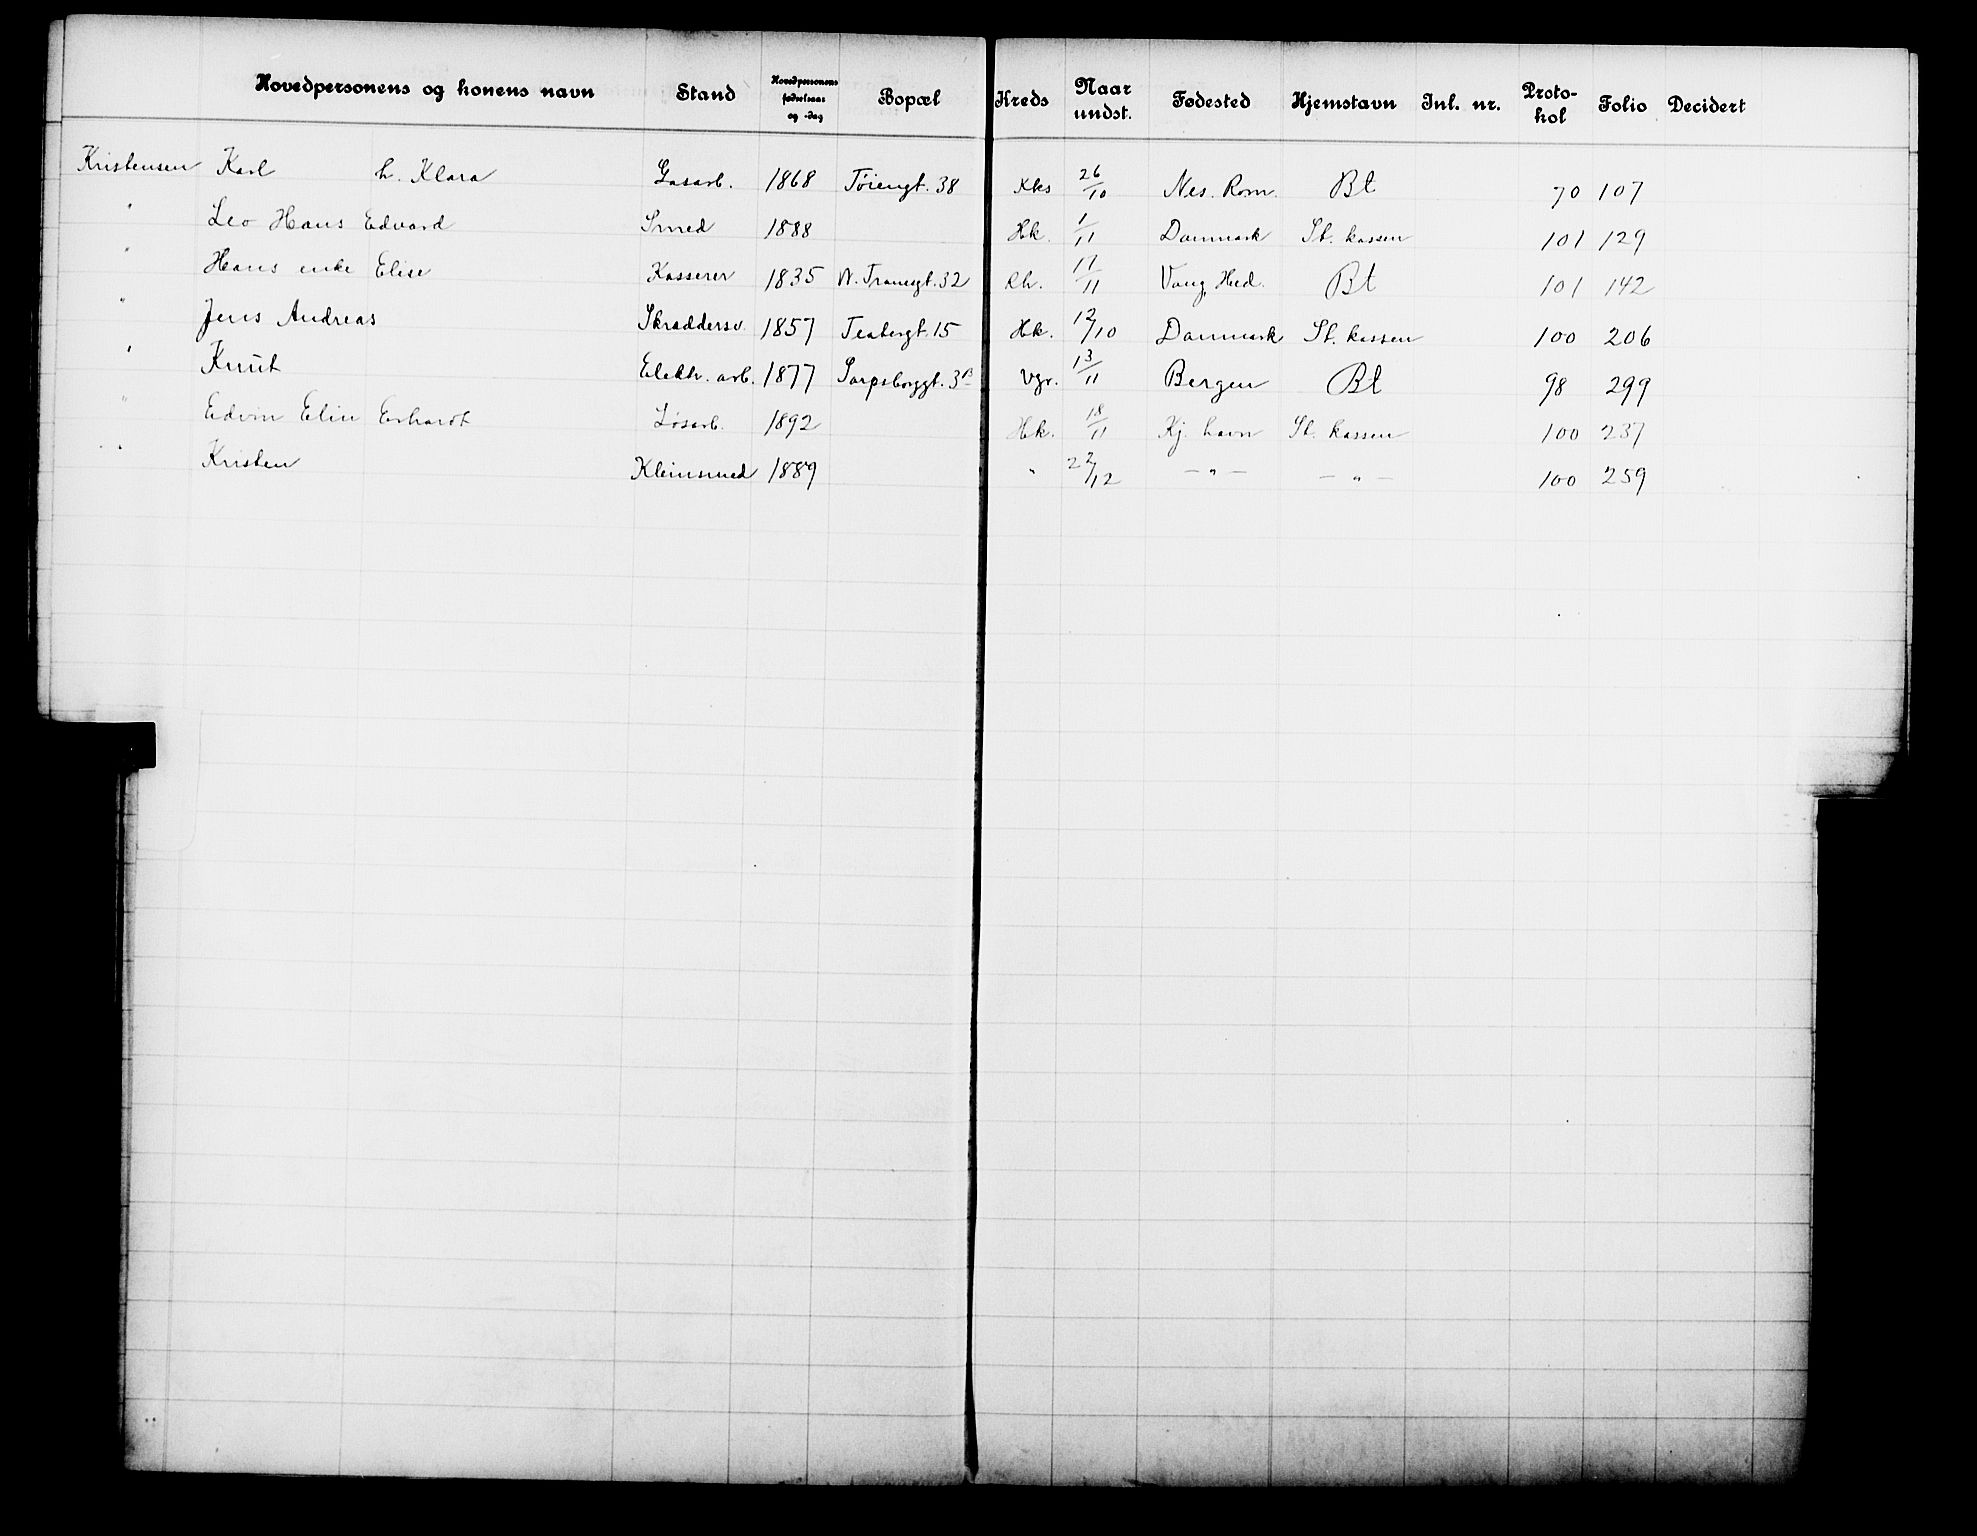 Hovedpersonens og konens navn Stand Hovedpersonens fødselsaar og -dag Bopæl Kreds Naar undst. Fødested Hjemstavn Inl. nr. Protokol Folio Decidert
Kristensen Karl h. Klara Gasarb. 1868 Tøiengt. 38 Kks 26/10 Nes. Rom. Bt 70 107
" Leo Hans Edvard Smed 1888 Hk. 1/11 Danmark St. kassen 101 129
" Hans enke Elise Kasserer 1835 W. Tranesgt. 32 Rh. 17/11 Vang Hed. Bt 101 142
" Jens Andreas Skræddersv. 1857 Teatergt. 15 Hk. 12/10 Danmark St. kassen 100 206
" Knut Elektr. arb. 1877 Sarpsborggt. 3B Vgr. 13/11 Bergen Bt 98 299
" Edvin Elin Erhardt Løsarb. 1892 Hk. 18/11 Kj. havn St. kassen 100 237
" Kristen Kleinsmed 1889 " 22/12 — " — — " — 100 259